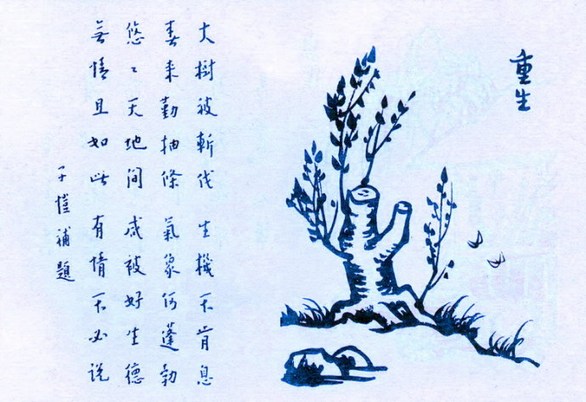 重生
大樹被斬伐 生機不肯息
春来勤抽條 氣象何蓬勃
悠々天地間 咸被好生德
無情且如此 有情不必說
子愷補題